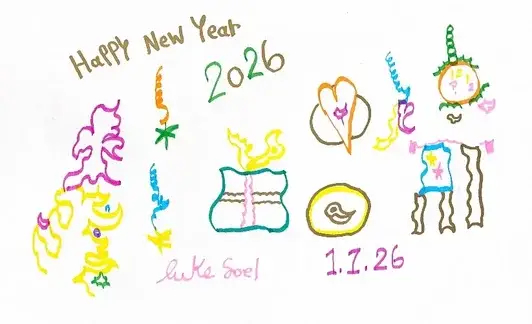 Happy New Year
2026
Luke Soel
1.1.26